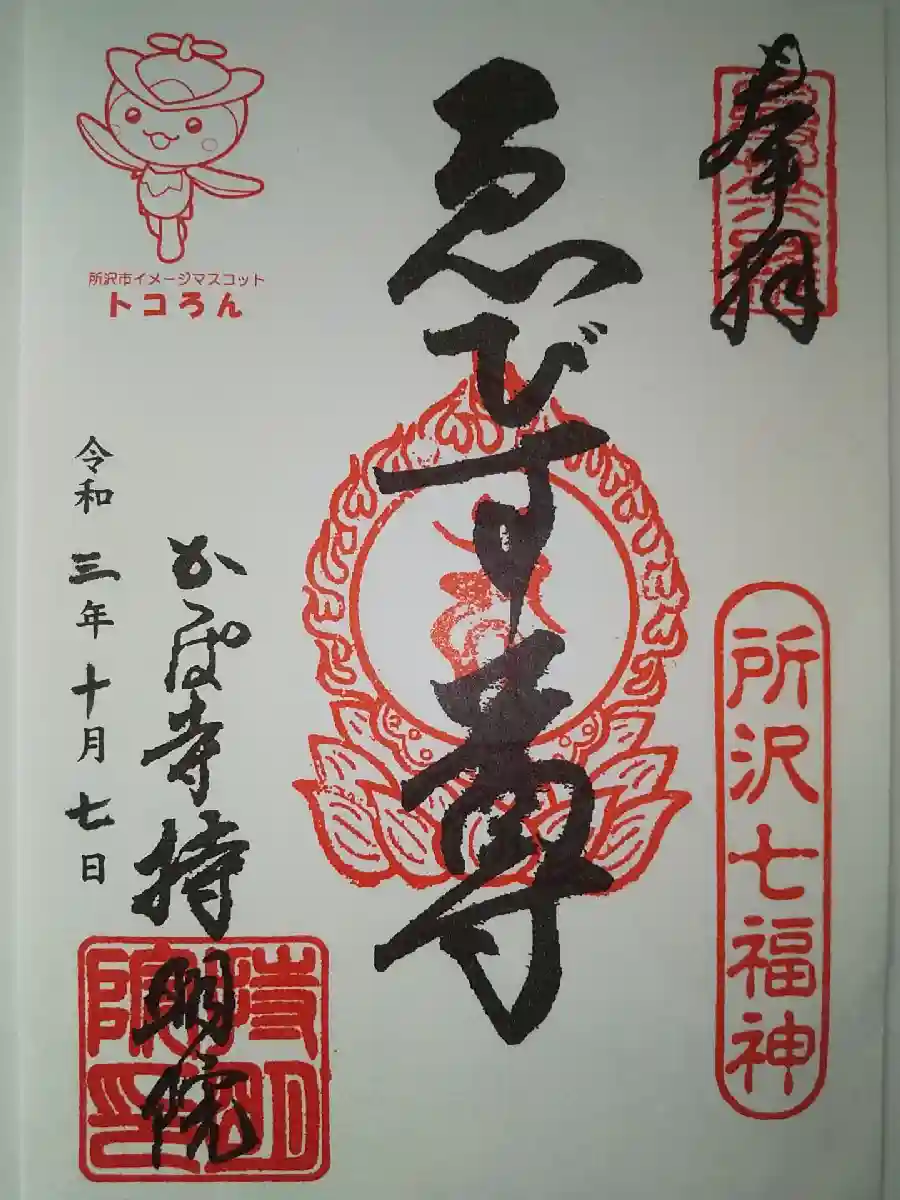 奉拝
所沢七福神
ゑびす尊
所沢市イメージマスコット
トコろん
かっぱ寺持明院
令和三年十月七日
持明院印